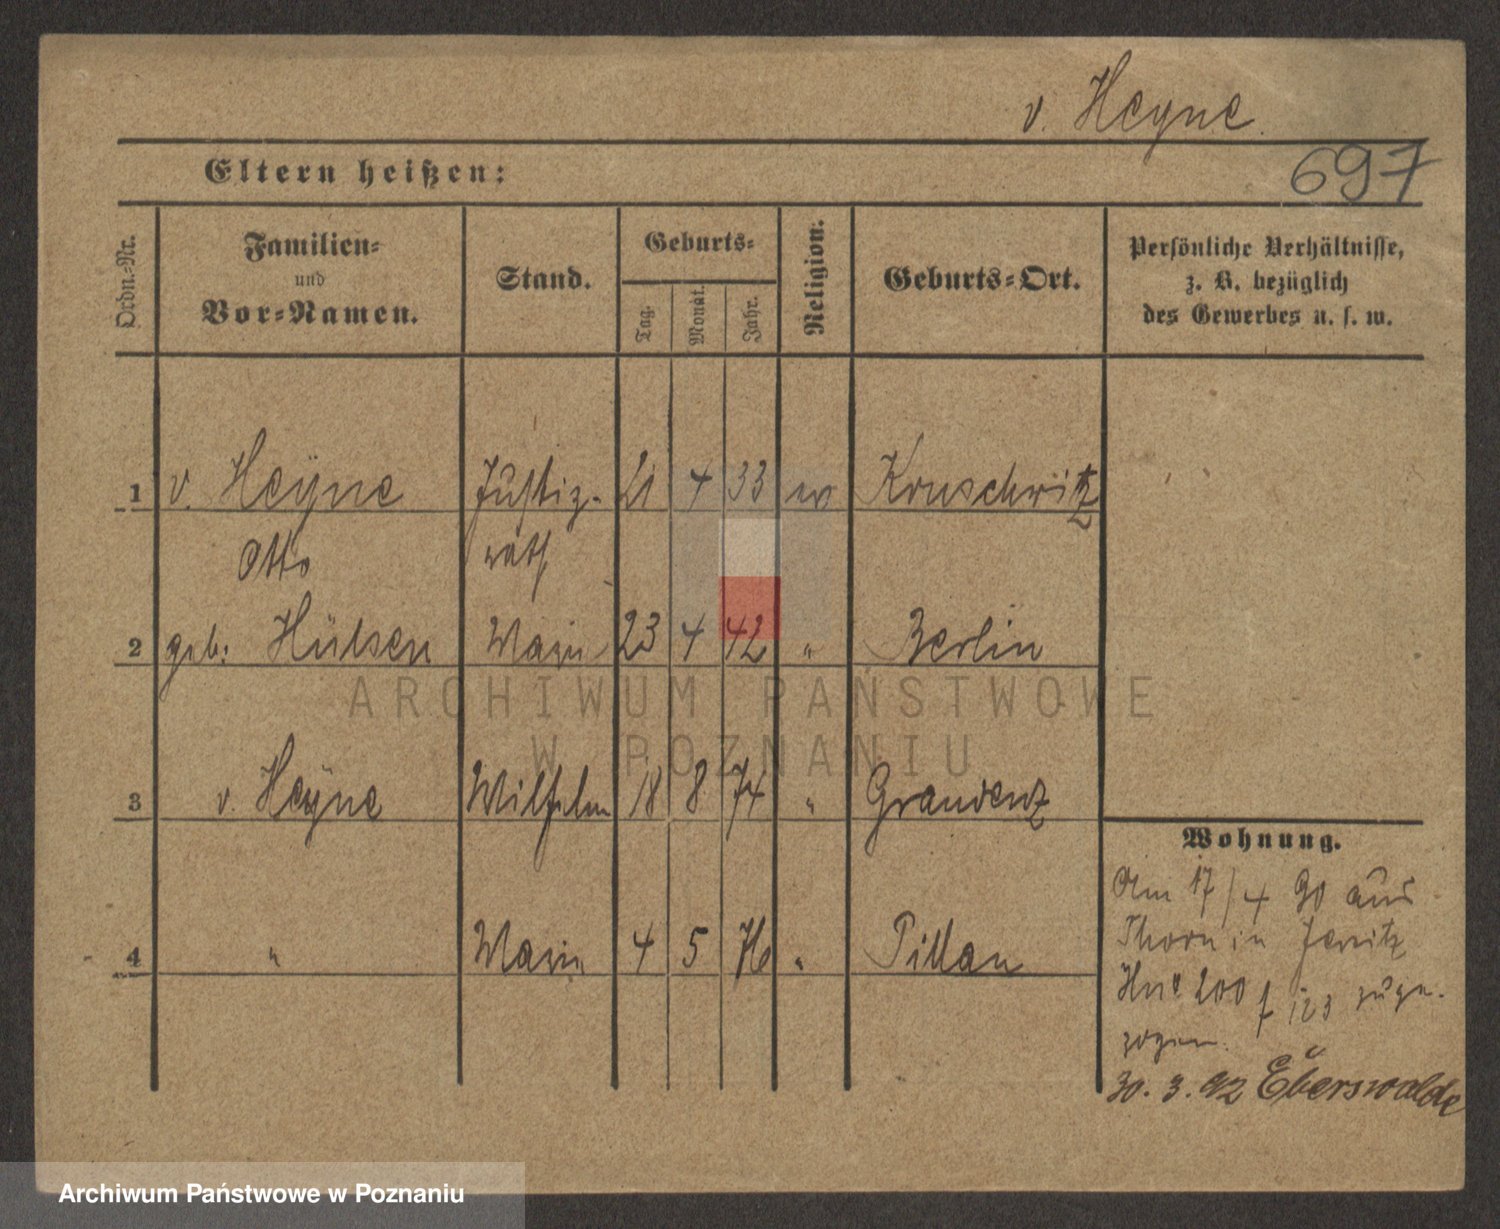 v. Heyne.
Eltern heißen:
697
Ordn.-Nr.
Familien-
und
Vor-Namen.
Stand.
Geburts-
Tag.
Monat.
Jahr.
Religion.
Geburts-Ort.
Persönliche Verhältnisse,
z. B. bezüglich
des Gewerbes u. s. w.
1 v. Heyne Justiz- 21 4 33 ev Kruschwitz
Otto rath
2 geb: Hülsen Marie 23 4 42 " Berlin
3 v. Heyne Wilhelm 18 8 74 " Graudenz
4 " Marie 4 5 76 " Pillau
Wohnung.
Am 17/4 90 aus
Thorn in Jersitz
200 zuge-
zogen.
30. 3. 92 Eberswalde
ARCHIWUM PAŃSTWOWE
W POZNANIU
Archiwum Państwowe w Poznaniu